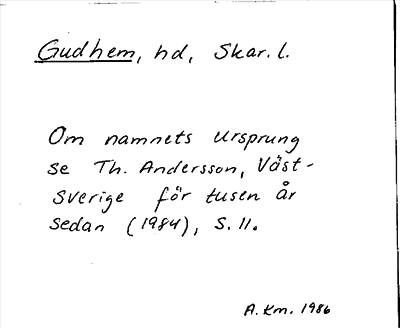 Gudhem, hd, Skar. l.
Om namnets ursprung
se Th. Andersson, Väst-
sverige för tusen år
sedan (1984), s. 11.
A. Km. 1986